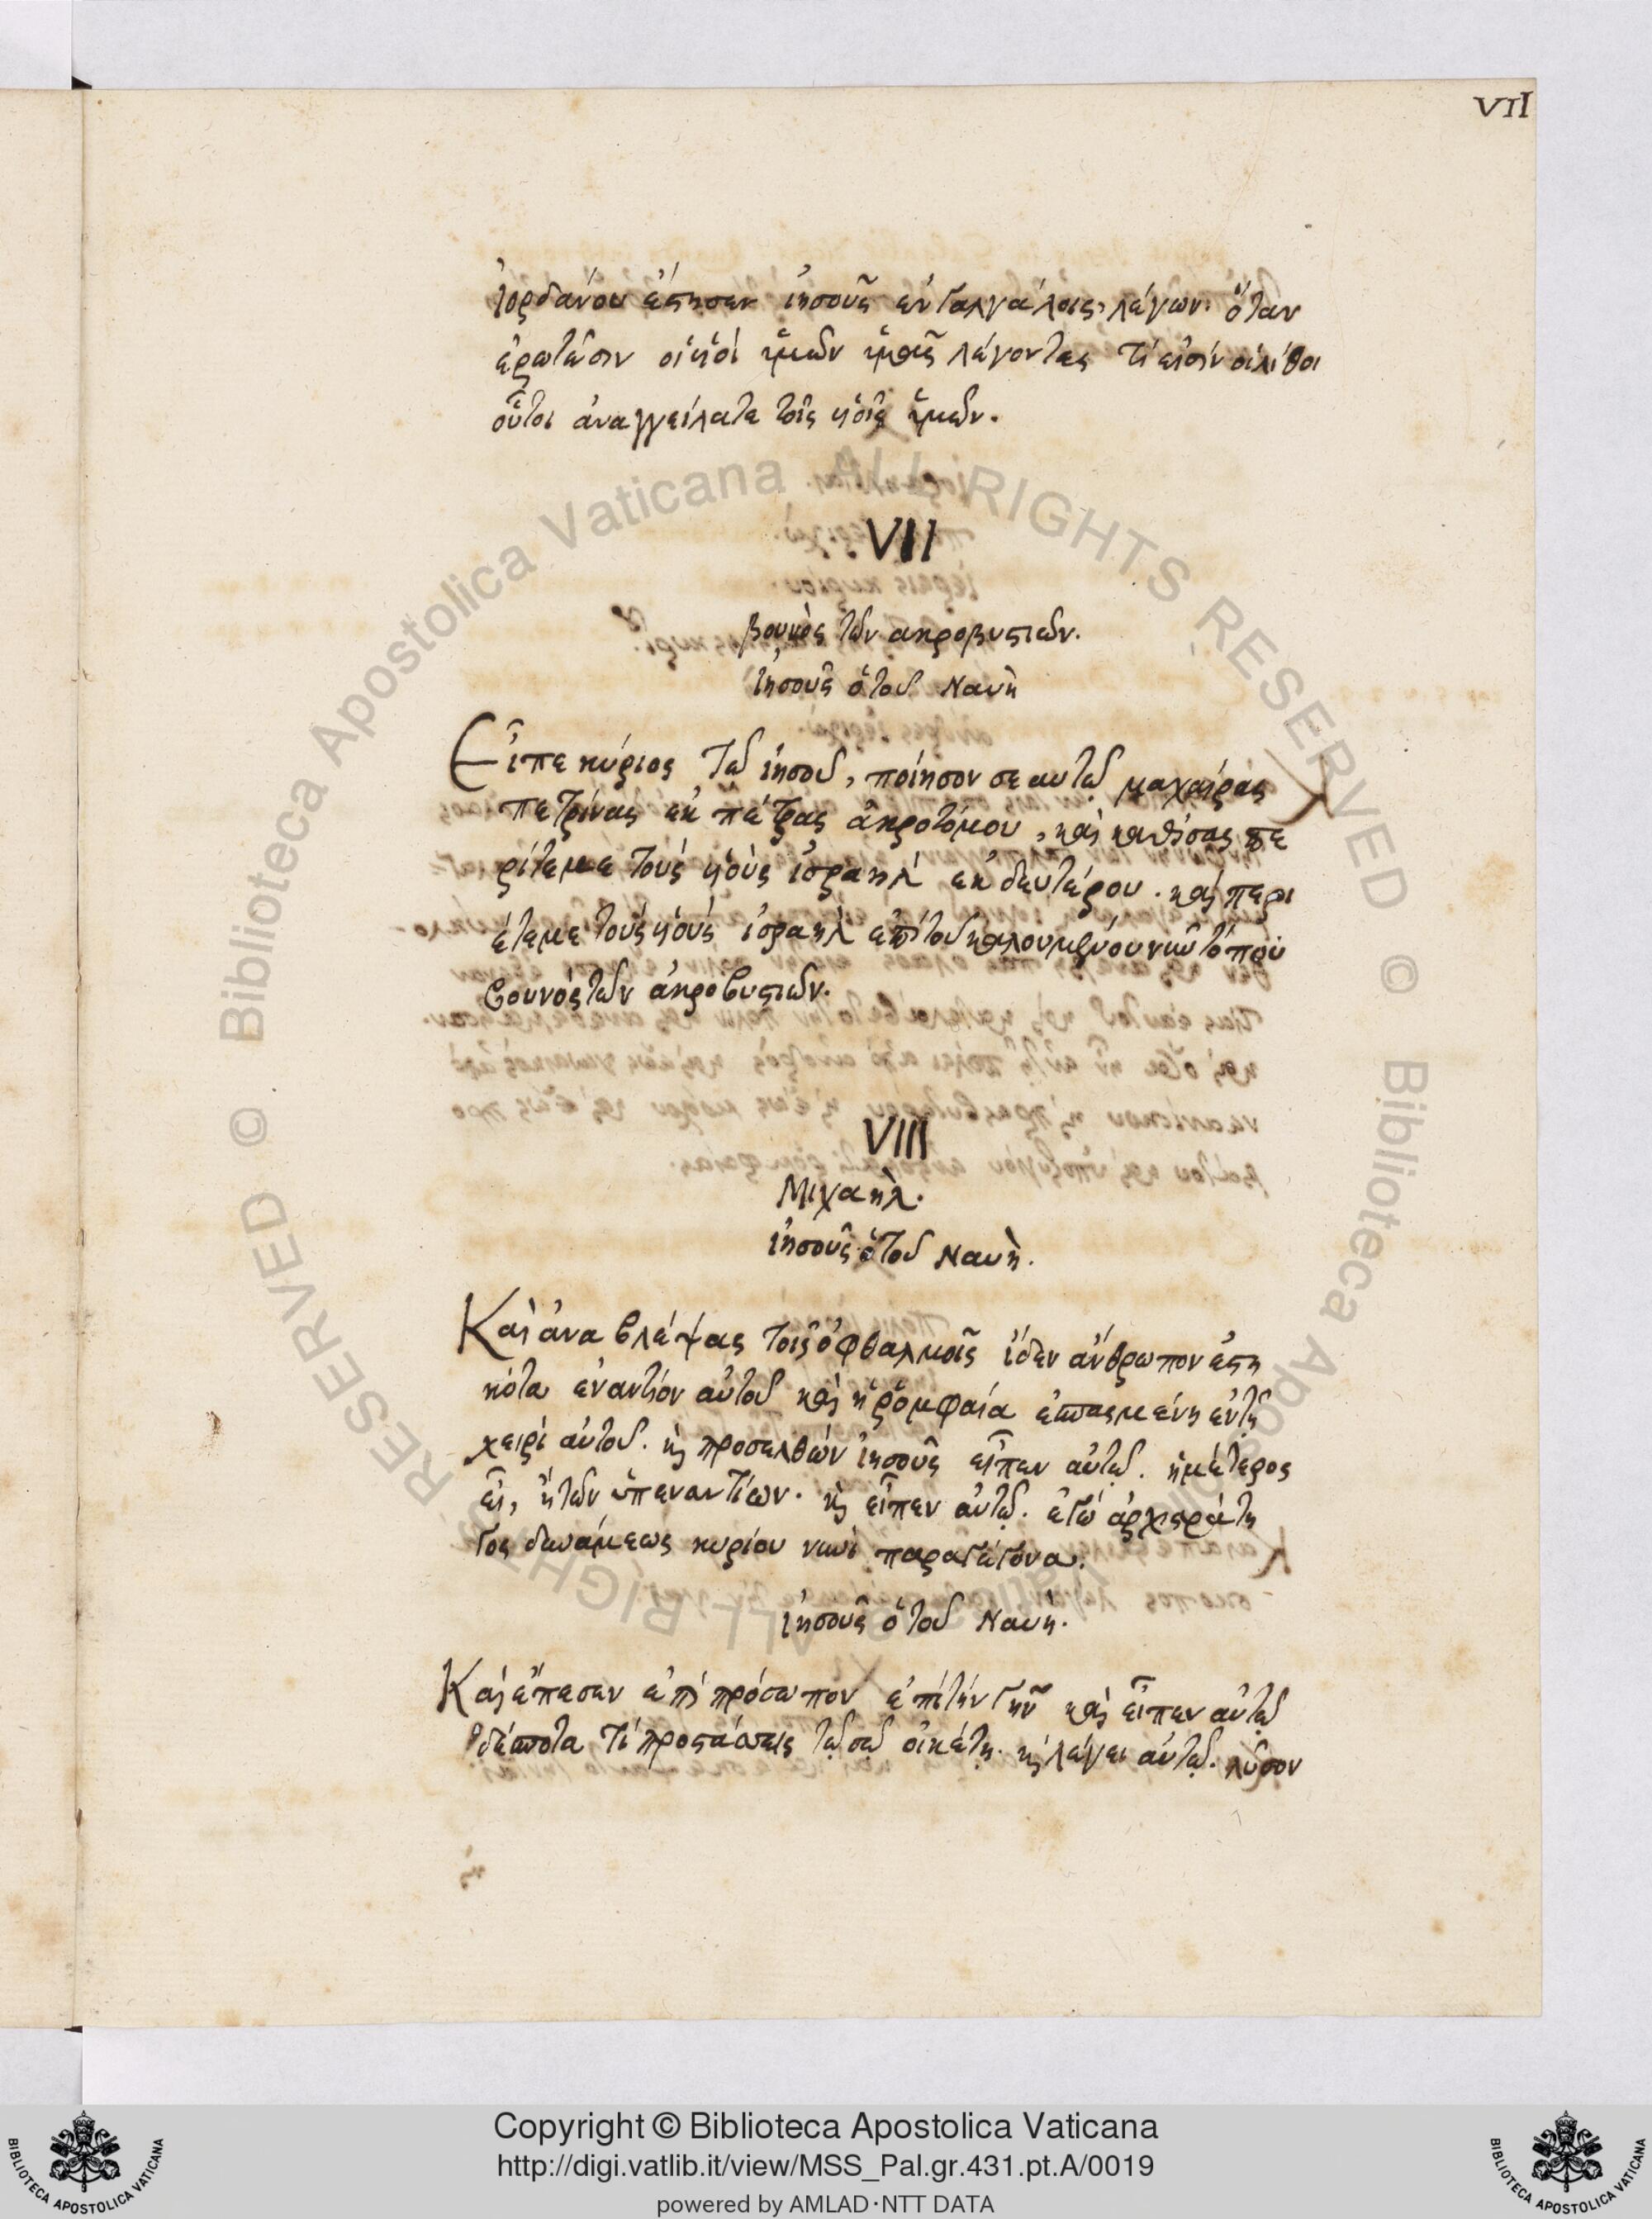 VII
ἰορδάνου ἔστησεν ἰησοῦς ἐν γαλγάλοις, λέγων. ὅταν
ἐρωτῶσιν οἱ υἱοὶ ὑμῶν ὑμᾶς λέγοντες τί εἰσίν οἱ λίθοι
οὗτοι ἀναγγείλατε τοῖς υἱοῖς ὑμῶν.
VII
βουνὸς τῶν ακροβυστιῶν.
ἰησοῦς ὁ τοῦ Ναυὴ
Εἶπε κύριος τῶ ἰησοῦ, ποίησον σεαυτῶ μαχαίρας
πετρίνας ἐκ πέτρας ἀκροτόμου, καὶ καθίσας πε
ρίτεμε τοὺς υἱοὺς ἰσραὴλ ἐκ δευτέρου. καὶ περι
έτεμε τοὺς υἱοὺς ἰσραὴλ ἐπὶ τοῦ καλουμένου νῦν τόπου
βουνὸς τῶν ἀκροβυστιῶν.
VIII
Μιχαὴλ.
ἰησοῦς ὁ τοῦ Ναυὴ.
Καὶ ἀναβλέψας τοῖς ὀφθαλμοῖς ἴδεν ἄνθρωπον ἑστη
κότα ἐναντίον αὐτοῦ καὶ ἡ ῥομφαία ἐσπασμένη ἐν τῇ
χειρὶ αὐτοῦ. καὶ προσελθὼν ἰησοῦς εἶπεν αὐτῷ. ἡμέτερος
εἶ, ἢ τῶν ὑπεναντίων. καὶ εἶπεν αὐτῷ. ἐγὼ ἀρχιστράτη
γος δυνάμεως κυρίου νυνὶ παραγέγονα.
ἰησοῦς ὁ τοῦ Ναυὴ.
Καὶ ἔπεσεν ἐπὶ πρόσωπον ἐπὶ τὴν γῆν καὶ εἶπεν αὐτῷ
δέσποτα τί προστάσσεις τῷ σῷ οἰκέτῃ. καὶ λέγει αὐτῷ. λῦσον
Copyright © Biblioteca Apostolica Vaticana
http://digi.vatlib.it/view/MSS_Pal.gr.431.pt.A/0019
powered by AMLAD·NTT DATA